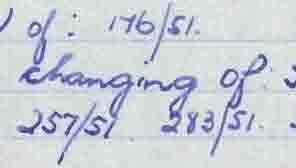 of: 176/51.
changing of:
257/51 283/51.